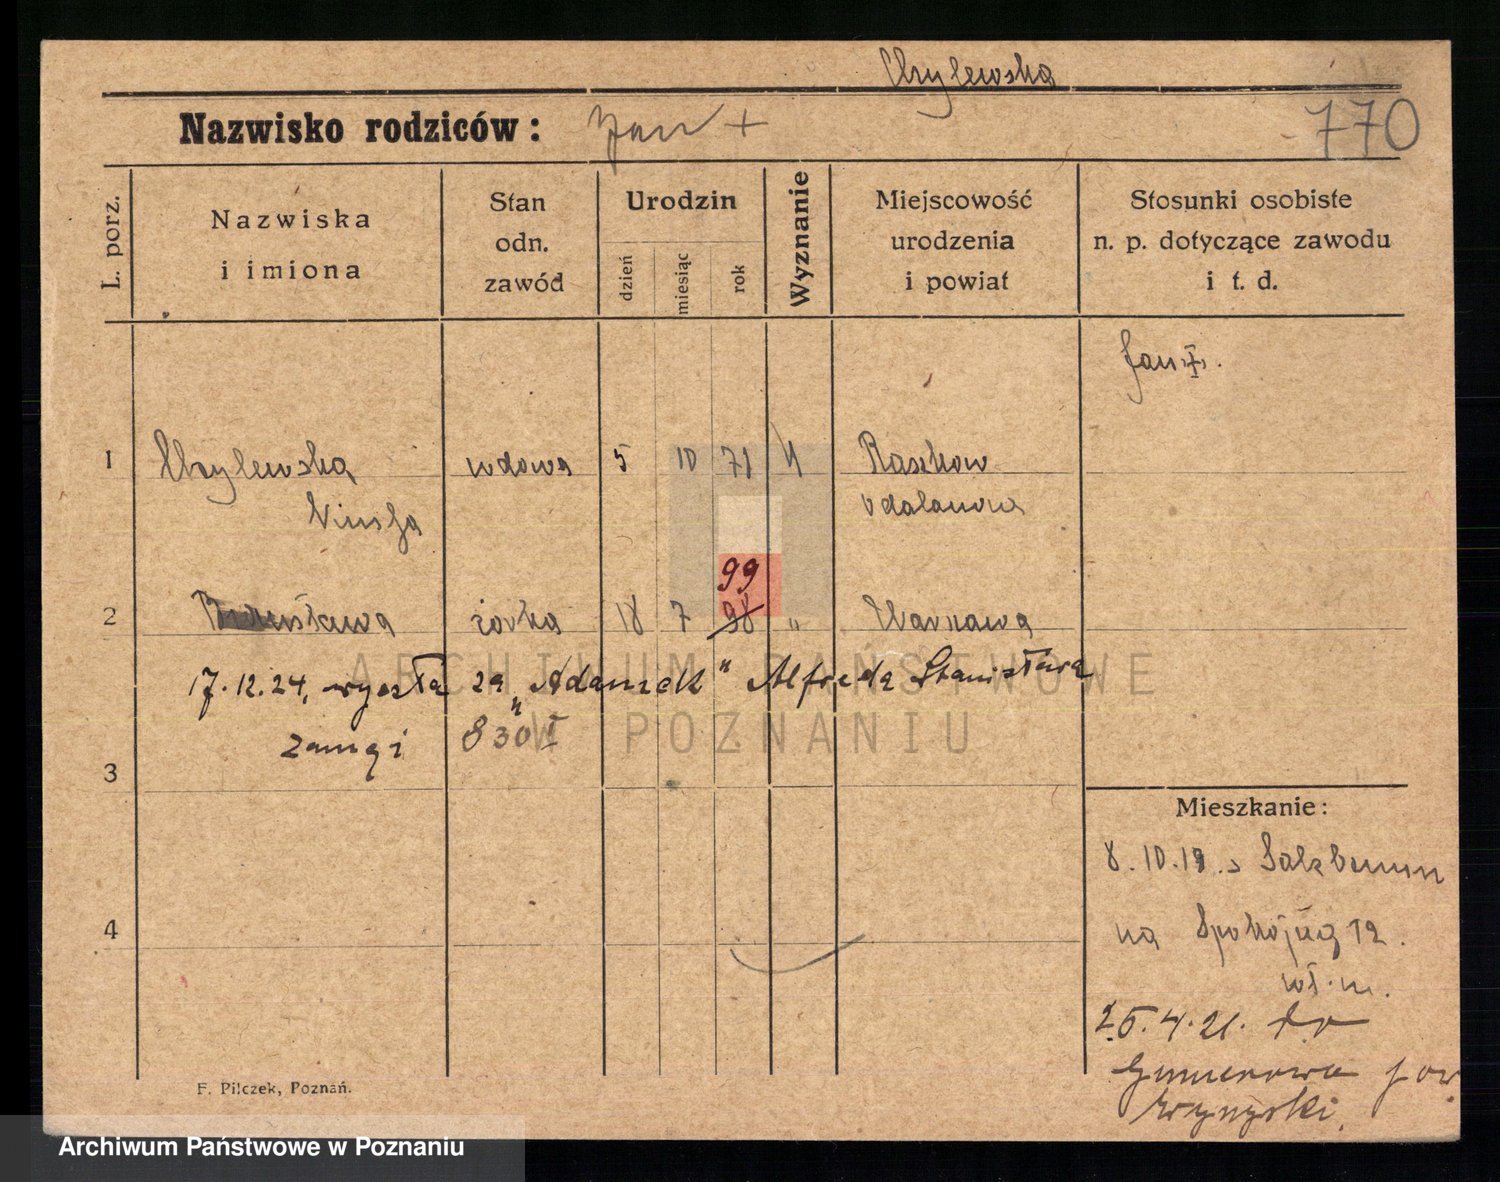 Chylewska
Nazwisko rodziców: Jan +
770
L. porz.
Nazwiska
i imiona
Stan
odn.
zawód
Urodzin
dzień
miesiąc
rok
Wyznanie
Miejscowość
urodzenia
i powiat
Stosunki osobiste
n. p. dotyczące zawodu
i t. d.
Jan +.
1 Chylewska wdowa 5 10 71 Raszkow
99
2 córka 18 7 98 "
17.12.24, wyszła za "Adamek" Alfreda Stanisława
830 I
3
4
Mieszkanie:
8.10.19. Salzbrunn
na Spokojną 12.
wł. m.
25.4.21. do
F. Pilczek, Poznań.
ARCHIWUM PAŃSTWOWE
W POZNANIU
Archiwum Państwowe w Poznaniu